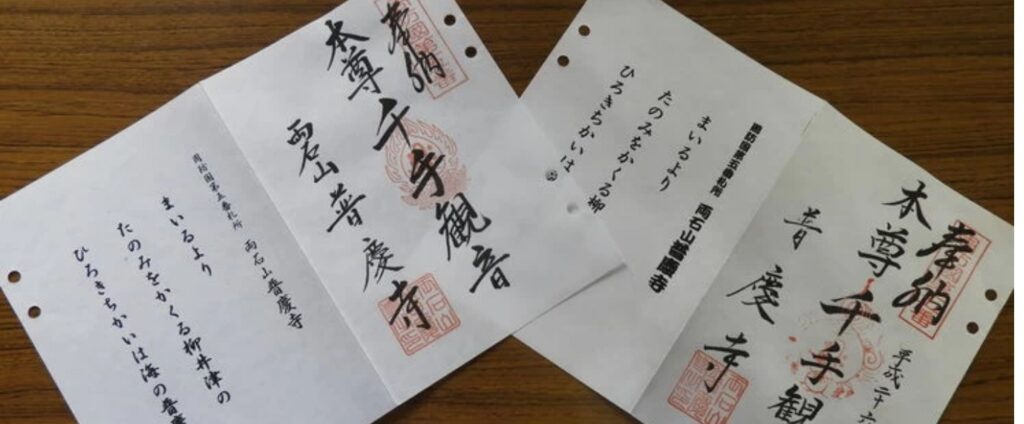 奉納
本尊千手観音
両石山普慶寺
周防国第五番札所 両石山普慶寺
まいるより
たのみをかくる柳井津の
ひろきちかいは海の普慶
奉納
平成二十六
本尊千手観
普慶寺
周防国第五番札所 両石山普慶寺
まいるより
たのみをかくる柳
ひろきちかいは